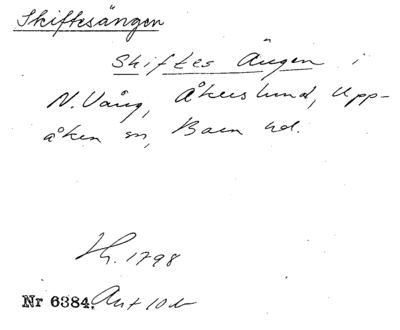 Skiftesängen
Skiftes Ängen i
N. Vång, Åkerslund, Upp-
åkra sn, Bara hd.
Lh. 1798
Nr 6384.